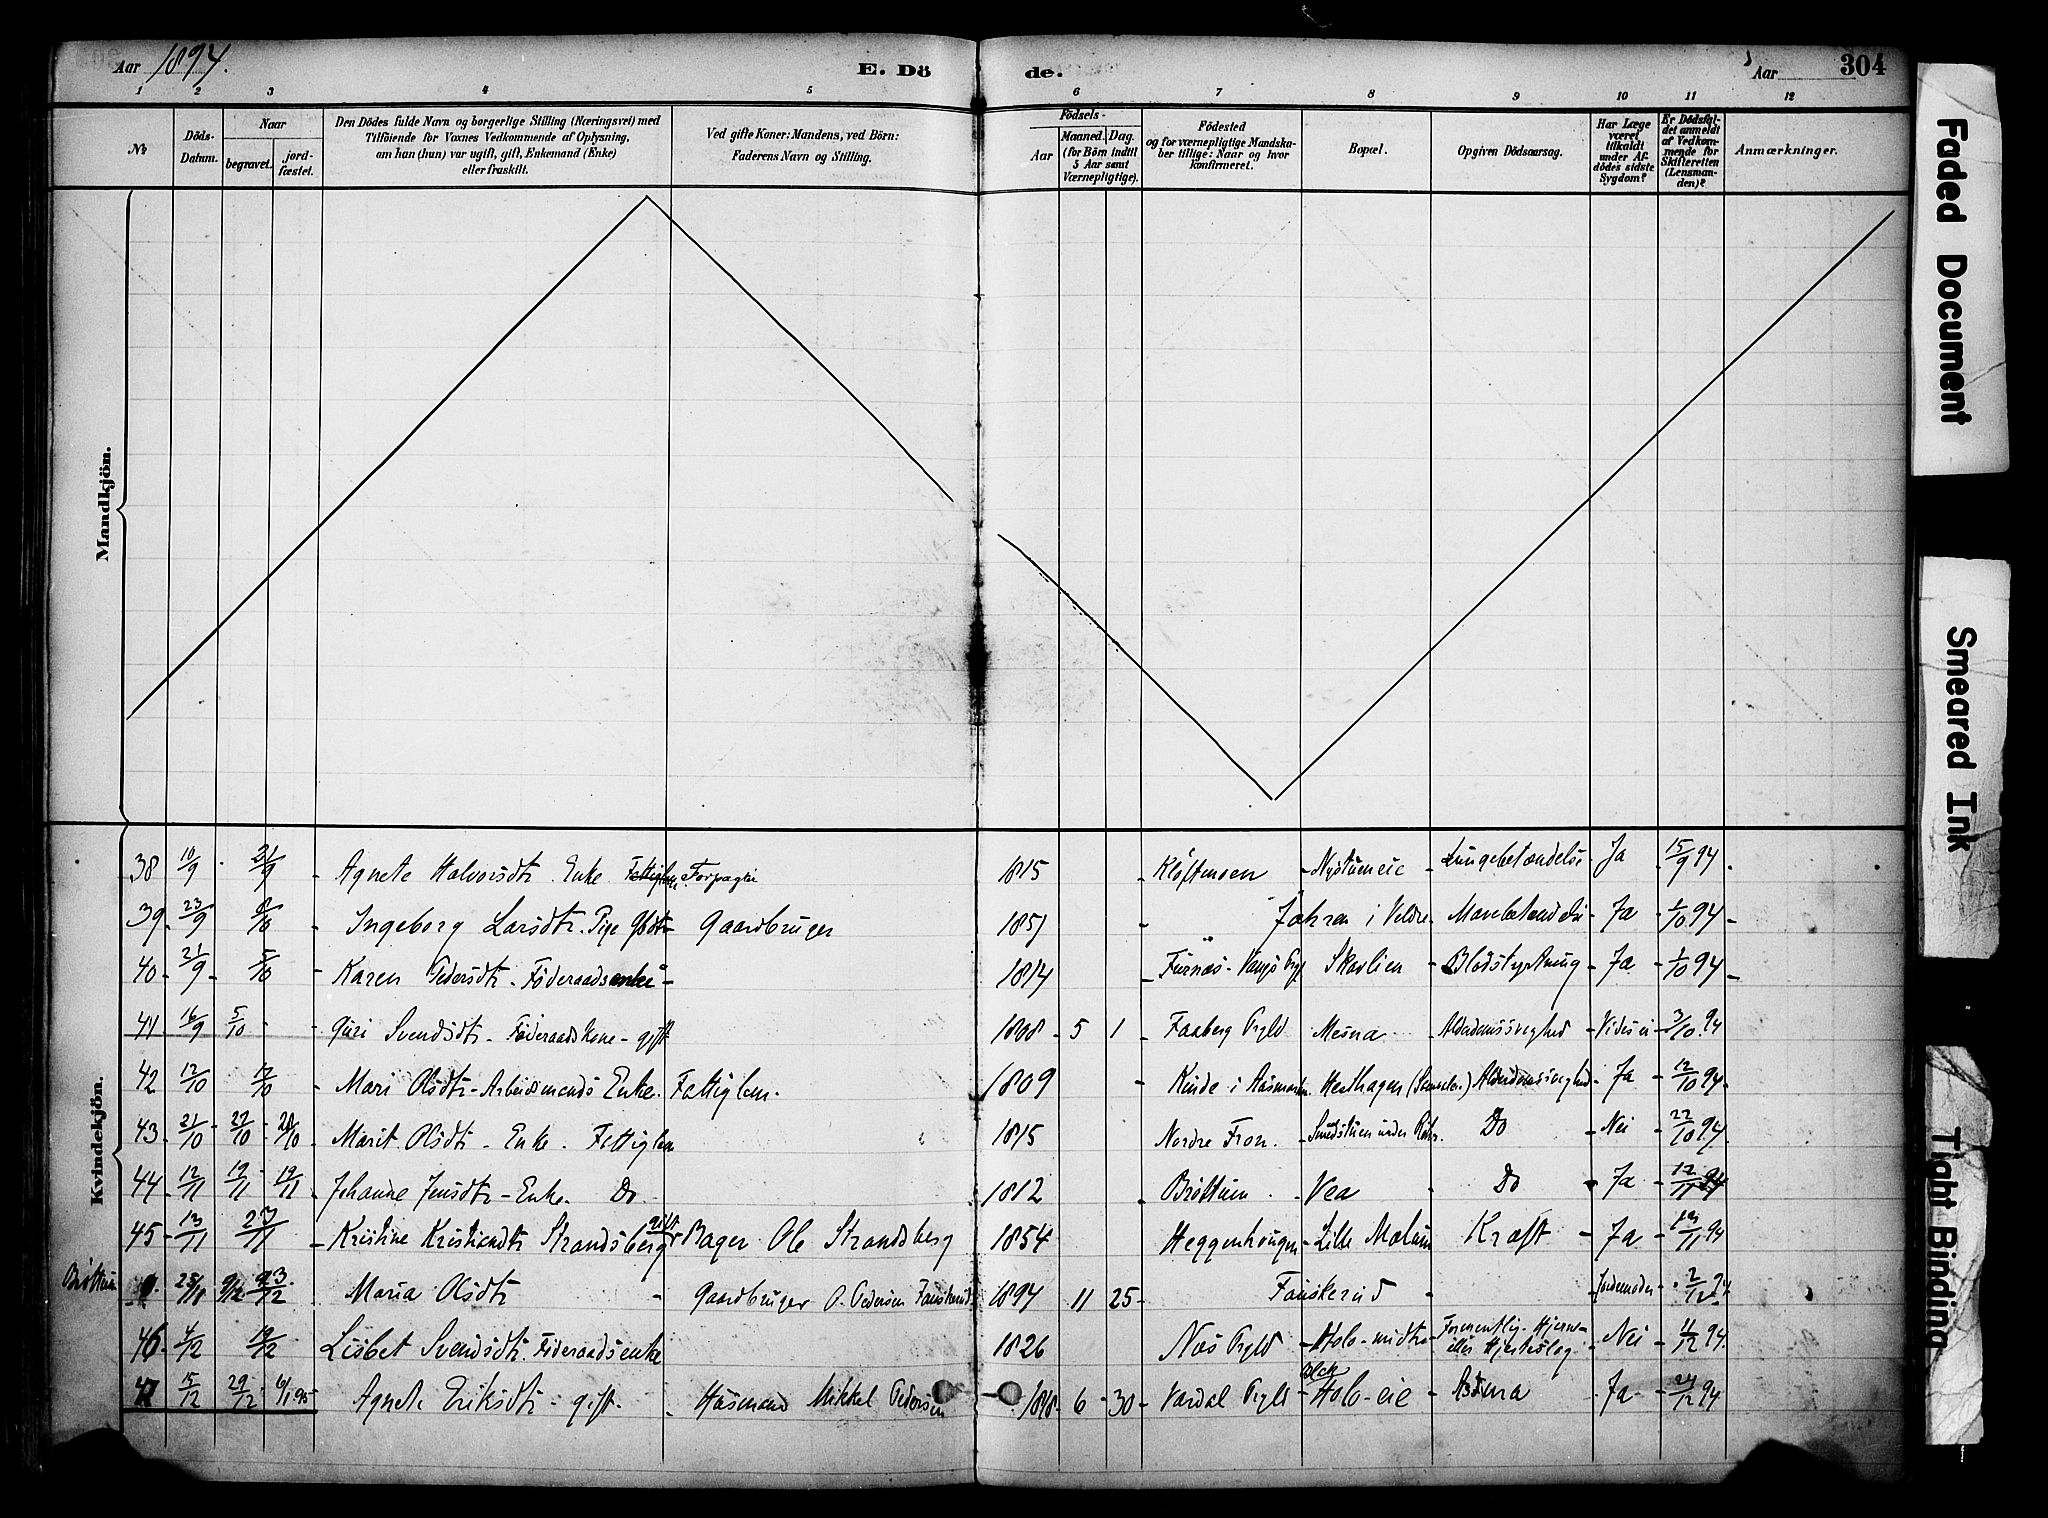 Aar 1894. E. Dö de. Aar 304
1 2 3 4 5 6 7 8 9 10 11 12
No
Döds-Datum.
Naar
begravet.
jord-fæstet.
Den Dödes fulde Navn og borgerlige Stilling (Næringsvei) med
Tilföiende for Voxnes Vedkommende af Oplysning,
om han (hun) var ugift, gift, Enkemand (Enke)
eller fraskilt.
Ved gifte Koner: Mandens, ved Börn:
Faderens Navn og Stilling.
Födsels-
Aar
Maaned. Dag.
(for Börn indtil
5 Aar samt
Værnepligtige).
Födested
og for værnepligtige Mandska-
ber tillige: Naar og hvor
konfirmeret.
Bopæl.
Opgiven Dödsaarsag.
Har Læge
været
tilkaldt
under Af-
dödes sidste
Sygdom?
Er Dödsfal-
det anmeldt
af Vedkom-
mende for
Skifteretten
(Lensman-
den)?
Anmærkninger.
Mandkjön.
Kvindekjön.
38 10/9 21/9 Agnete Halvorsdtr. Enke Forpagter 1815 Klöftmoen Nystueneie Lungebetændelse Ja 15/9 94
39 23/9 Ingeborg Larsdtr. Pige Gaardbruger 1851 i Veldre Mavebetændelse Ja 1/10 94
40 21/9 5/10 Karen Pedersdtr. Föderaadsenke 1814 Furnæs Vangs Pgl Skavlien Blodstyrtning Ja 1/10 94
41 16/9 5/10 Guri Svendsdtr. Föderaadskone gift 1808 5 1 Faaberg Pgld Mesna Alderdomssvaghed Vides ei 3/10 94
42 12/10 Mari Olsdtr. Arbeidsmands Enke. Fattiglem. 1809 Kinde i Aasmarken Hesthagen Alderdomssvaghed Ja 12/10 94
43 21/10 27/10 28/10 Marit Olsdtr. Enke. Fattiglem 1815 Nordre Fron. Smedstuen under Do Nei 22/10 94
44 12/11 19/11 19/11 Johanne Jensdtr Enke. Do 1812 Bröttum Vea Do Ja 12/11 94
45 13/11 23/11 Kristine Kristiansdtr Strandsberg gift Bager Ole Strandsberg 1854 Heggenhougen Lille Mælum Kræft Ja 19/11 94
Bröttum 9. 9/12 Maria Olsdtr Gaardbruger O. Pedersen Fauskerud 1894 11 25 Fauskerud Jordemoder 2/12 94
46 4/12 Lisbet Svendsdtr. Föderaadsenke 1826 Næs Pgld Holo-midtre Formentlig Hjerne- eller Hjerteslag Nei 11/12 94
47 15/12 29/12 6/1 95 Agnete Eriksdtr. gift. Husmand Mikkel Pedersen 1818 6 30 Vardal Pgld Holo-eie Astma Ja 24/12 94
Faded Document
Smeared Ink
Tight Binding